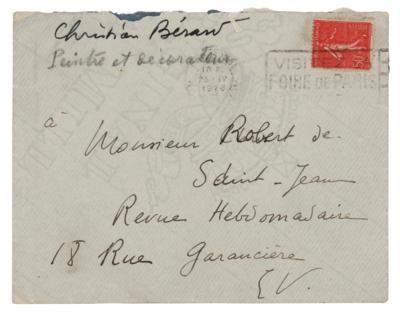 Christian Bérard
Peintre et décorateur
VISI
FOIRE DE PARIS
50
à
Monsieur Robert de
Saint-Jean
Revue Hebdomadaire
18 Rue Garancière
E.V.